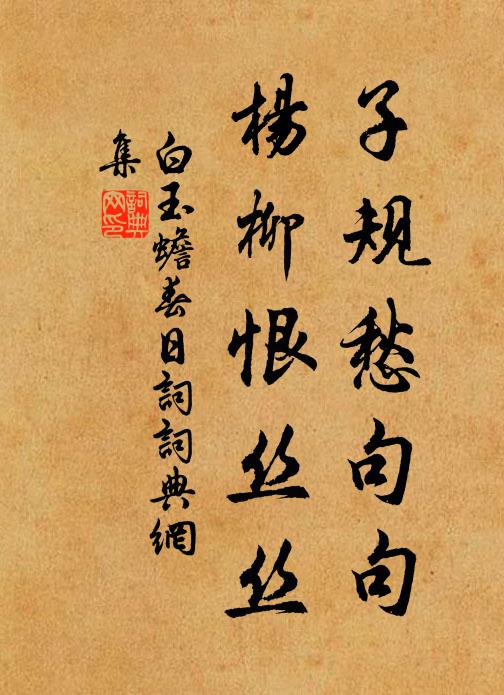 子規愁句句
楊柳恨丝丝
白玉蟾春日詞詞典網
集
詞典网印